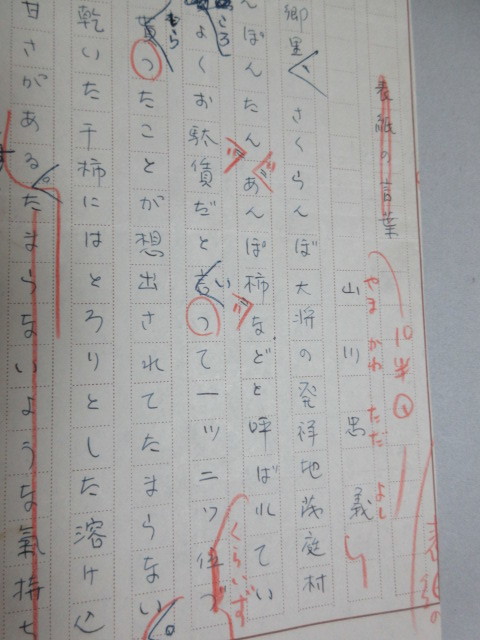 表紙の言葉
山川忠義
やまかわ ただよし
10半
郷里、さくらんぼ大将の発祥地茂庭村
んぽんたんあんぽ柿などと呼ばれてい
よくお駄賃だと言って一ツ二ツ位
くらいず
もらったことが想出されてたまらない。
乾いた干柿にはとろりとした溶け込
甘さがある。たまらないような氣持ち